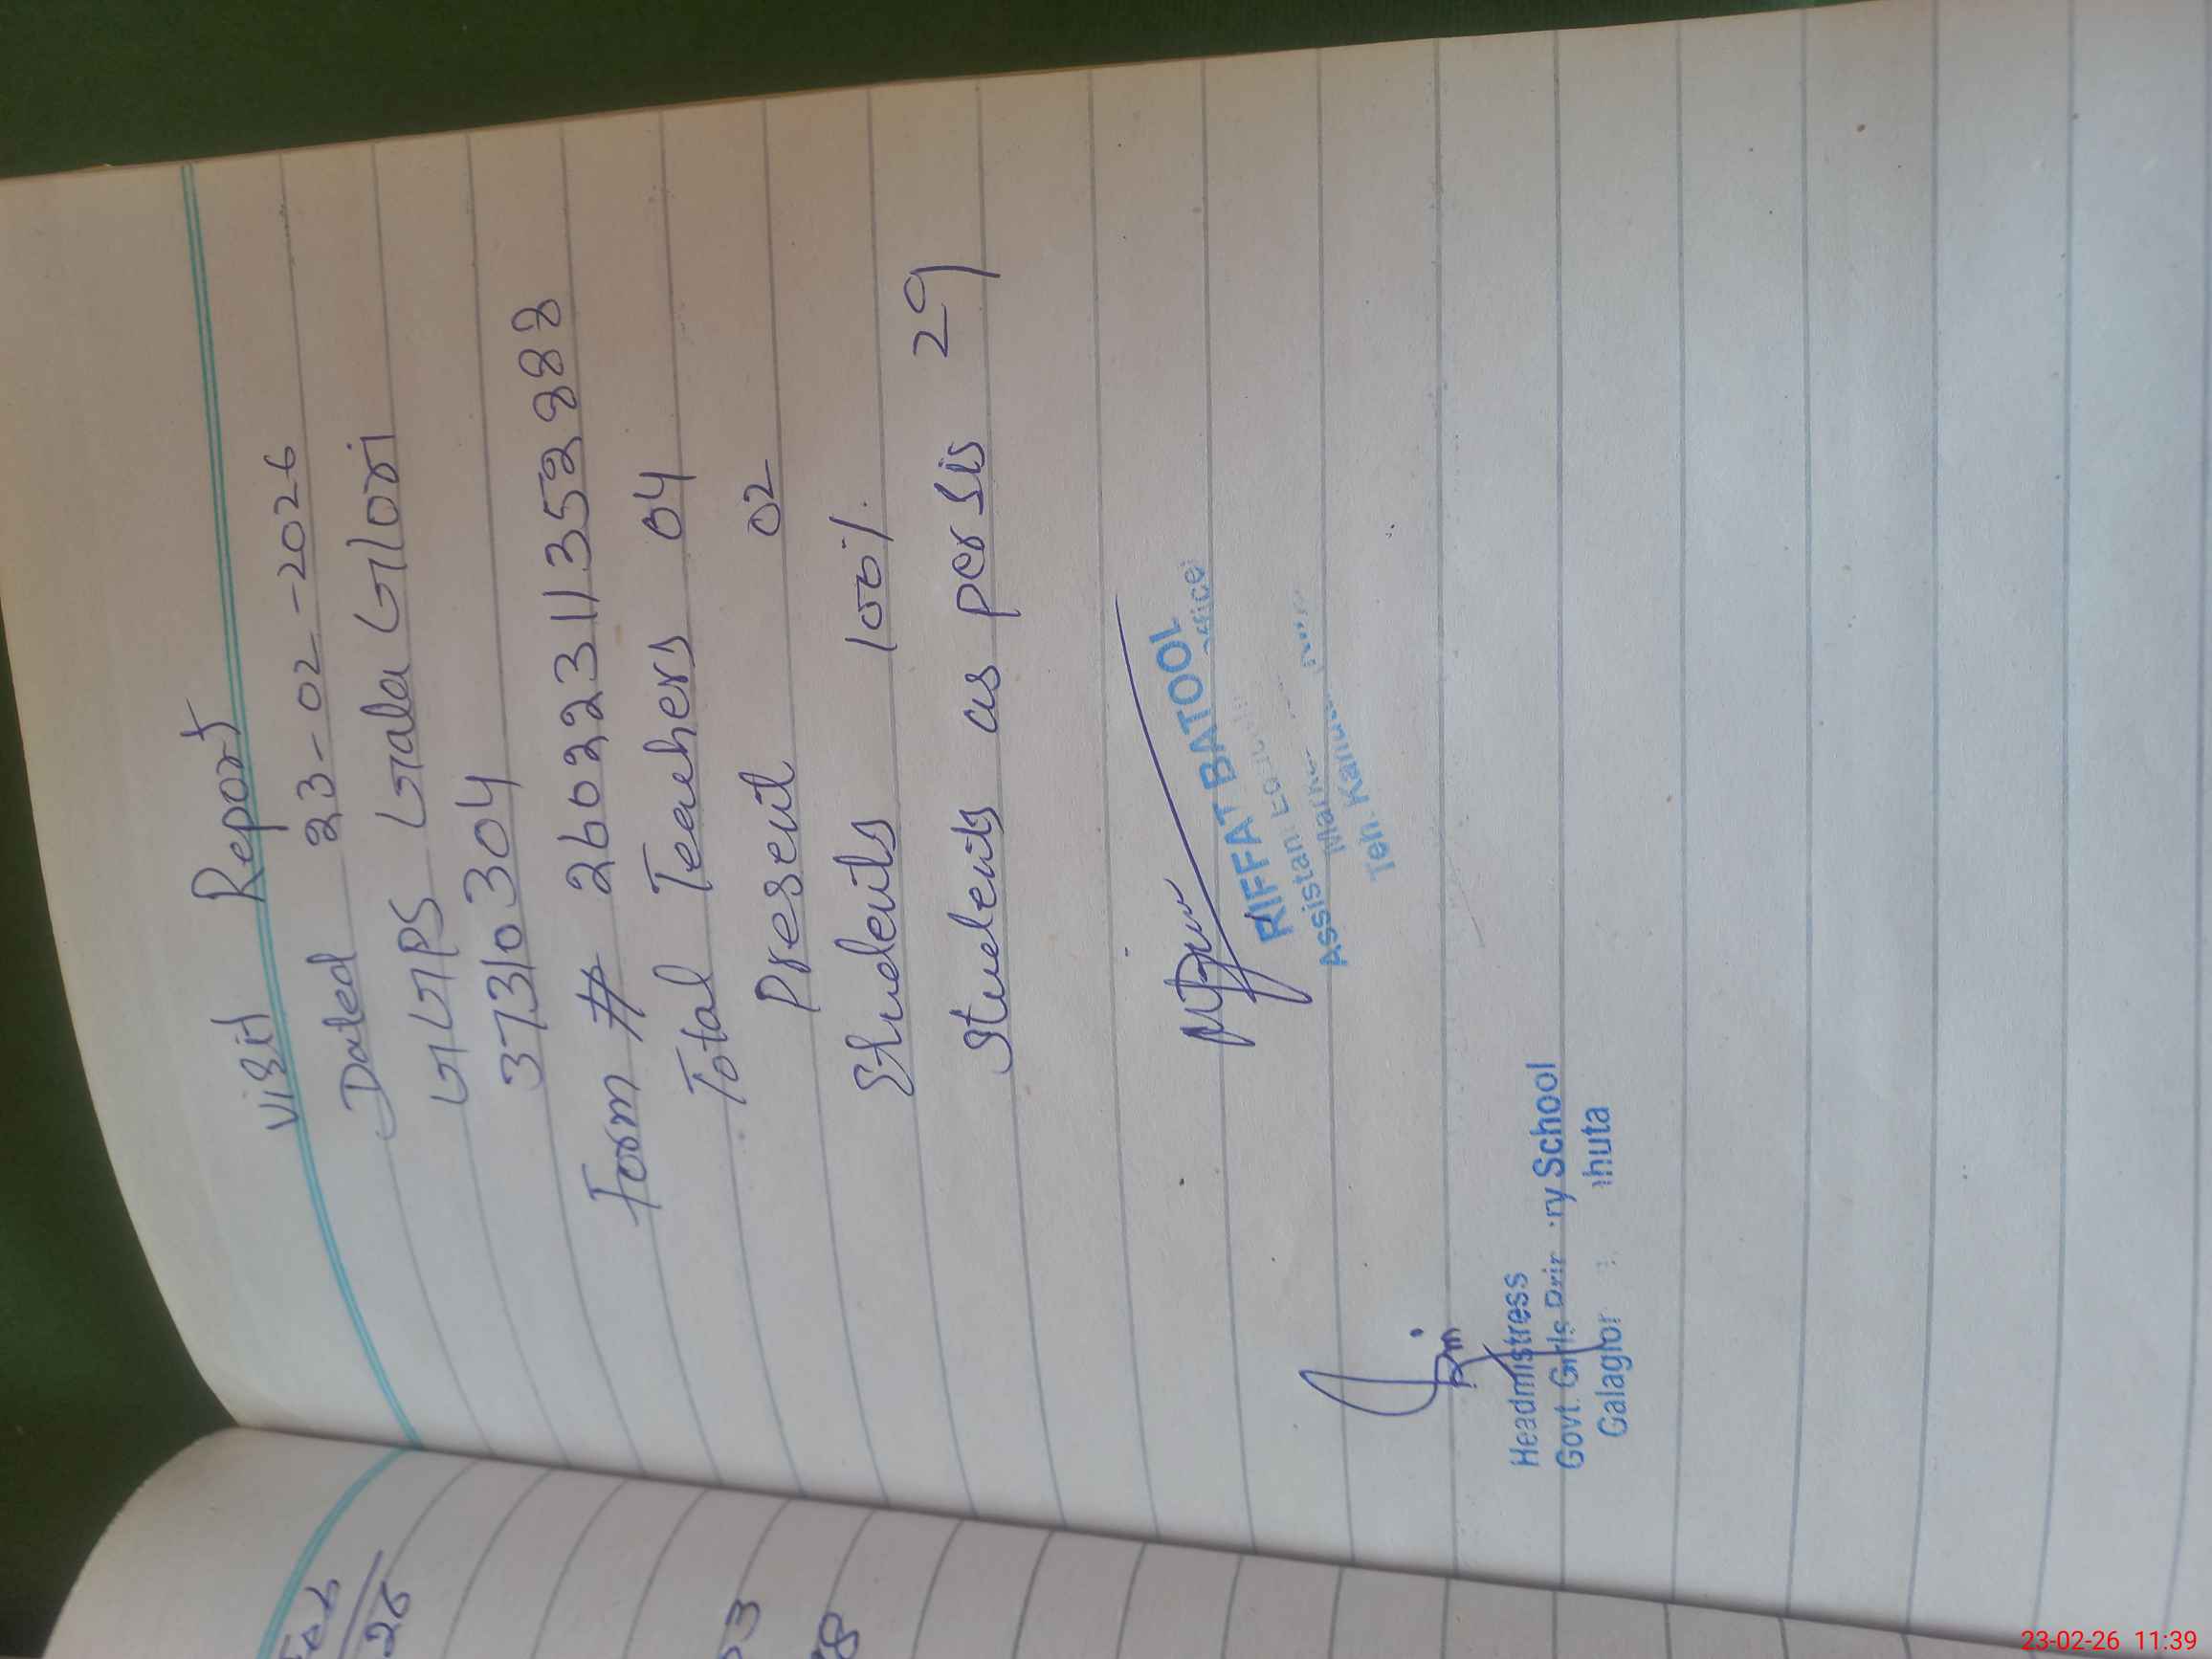 Visit Report
Dated 23-02-2026
GGPS Gala Glori
37310304
Form # 260223113529888
Total Teachers 04
Present 02
Students 100%
Students as per Sis 29
RIFFAT BATOOL
Assistan
Teh.
Headmistress
Govt. Girls School
23-02-26 11:39